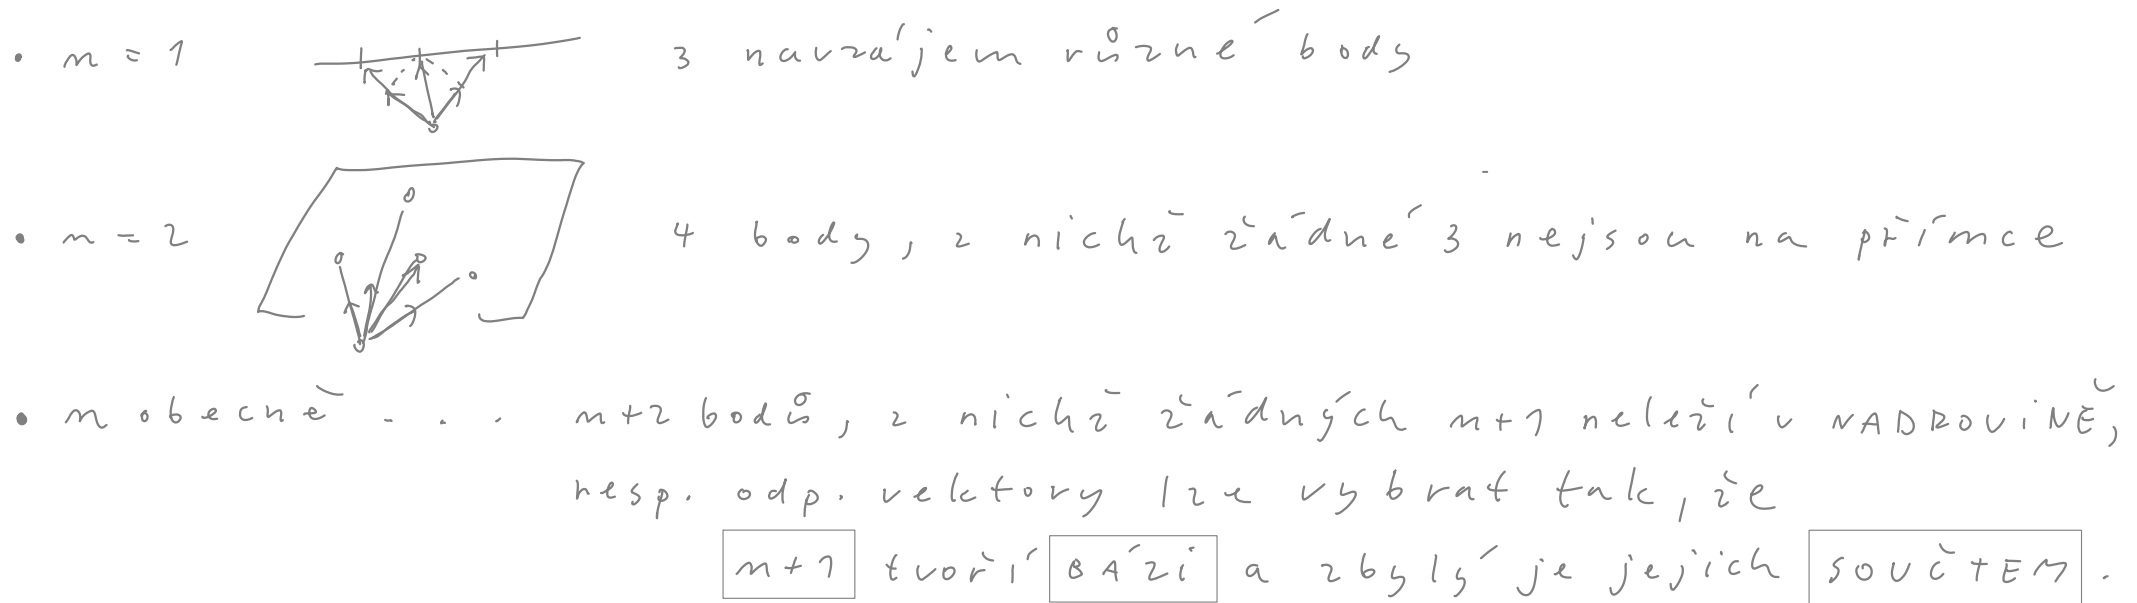 • n = 1 3 navzájem různé body
• n = 2 4 body, z nichž žádné 3 nejsou na přímce
• n obecné . . . n+2 bodů, z nichž žádných n+1 neleží v NADROVINĚ,
resp. odp. vektory lze vybrat tak, že
n+1 tvoří BÁZI a zbylý je jejich SOUČTEM.